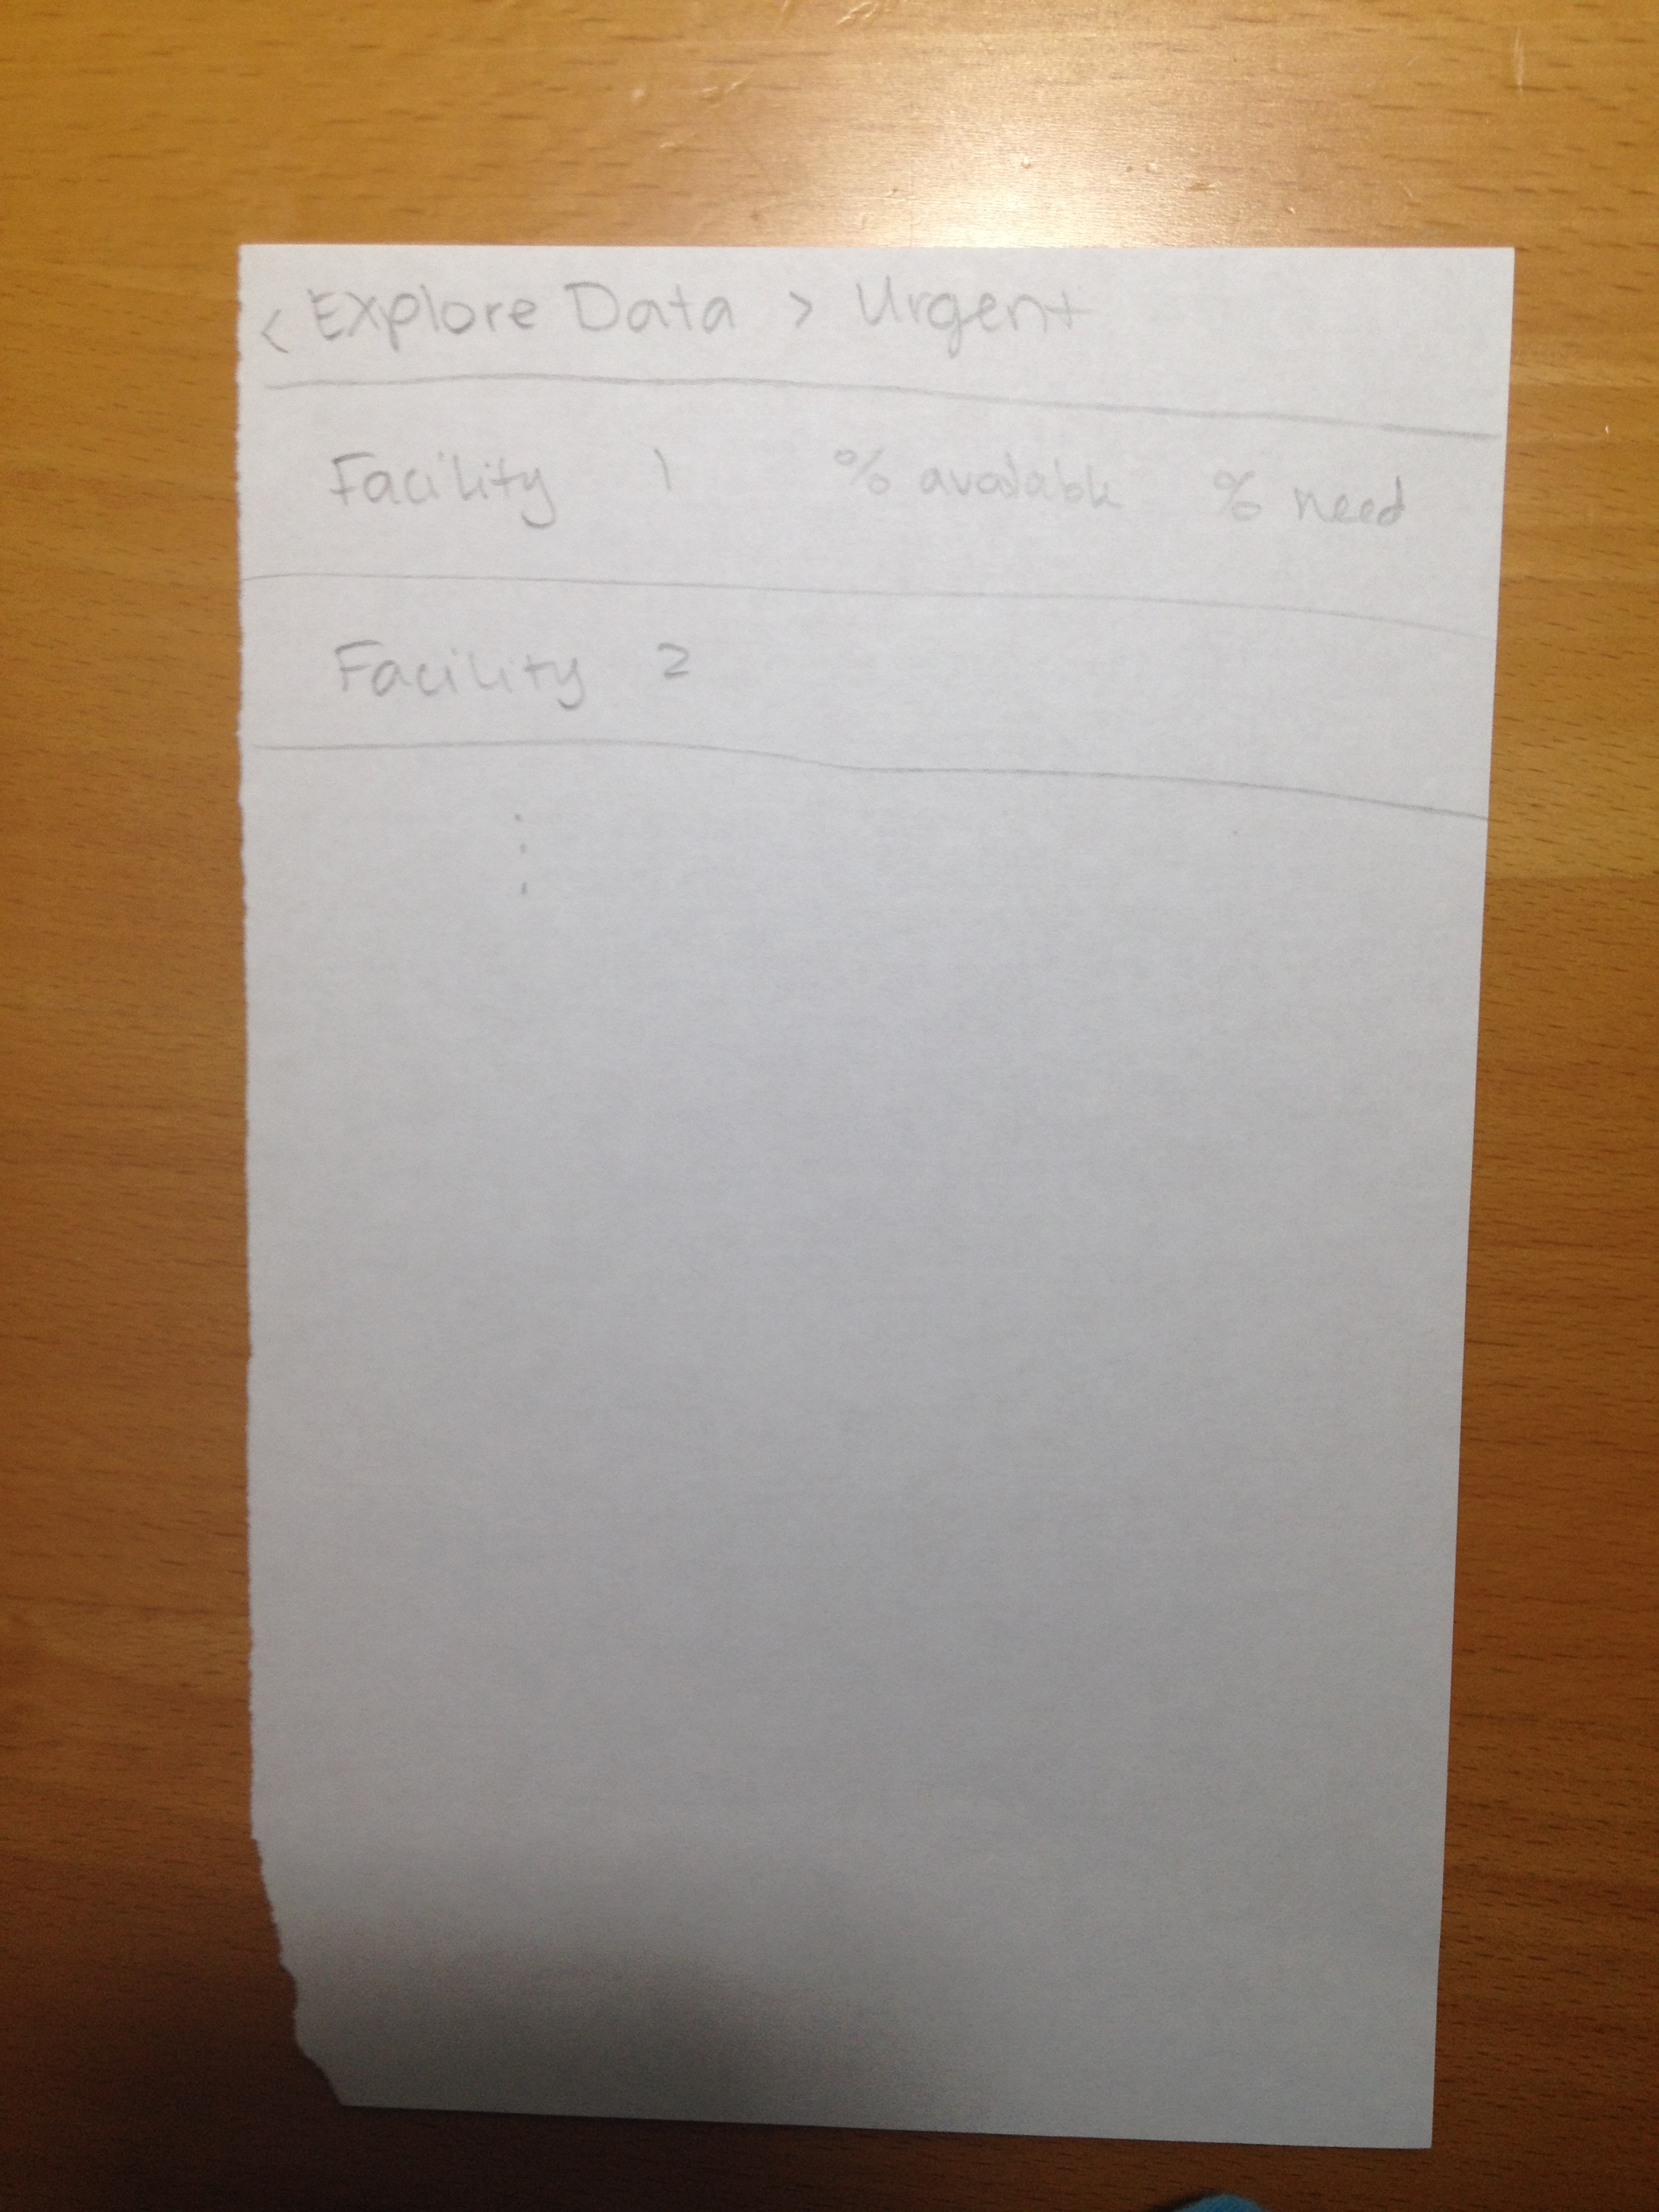 < Explore Data > Urgent
Facility 1 % available % need
Facility 2
⋮